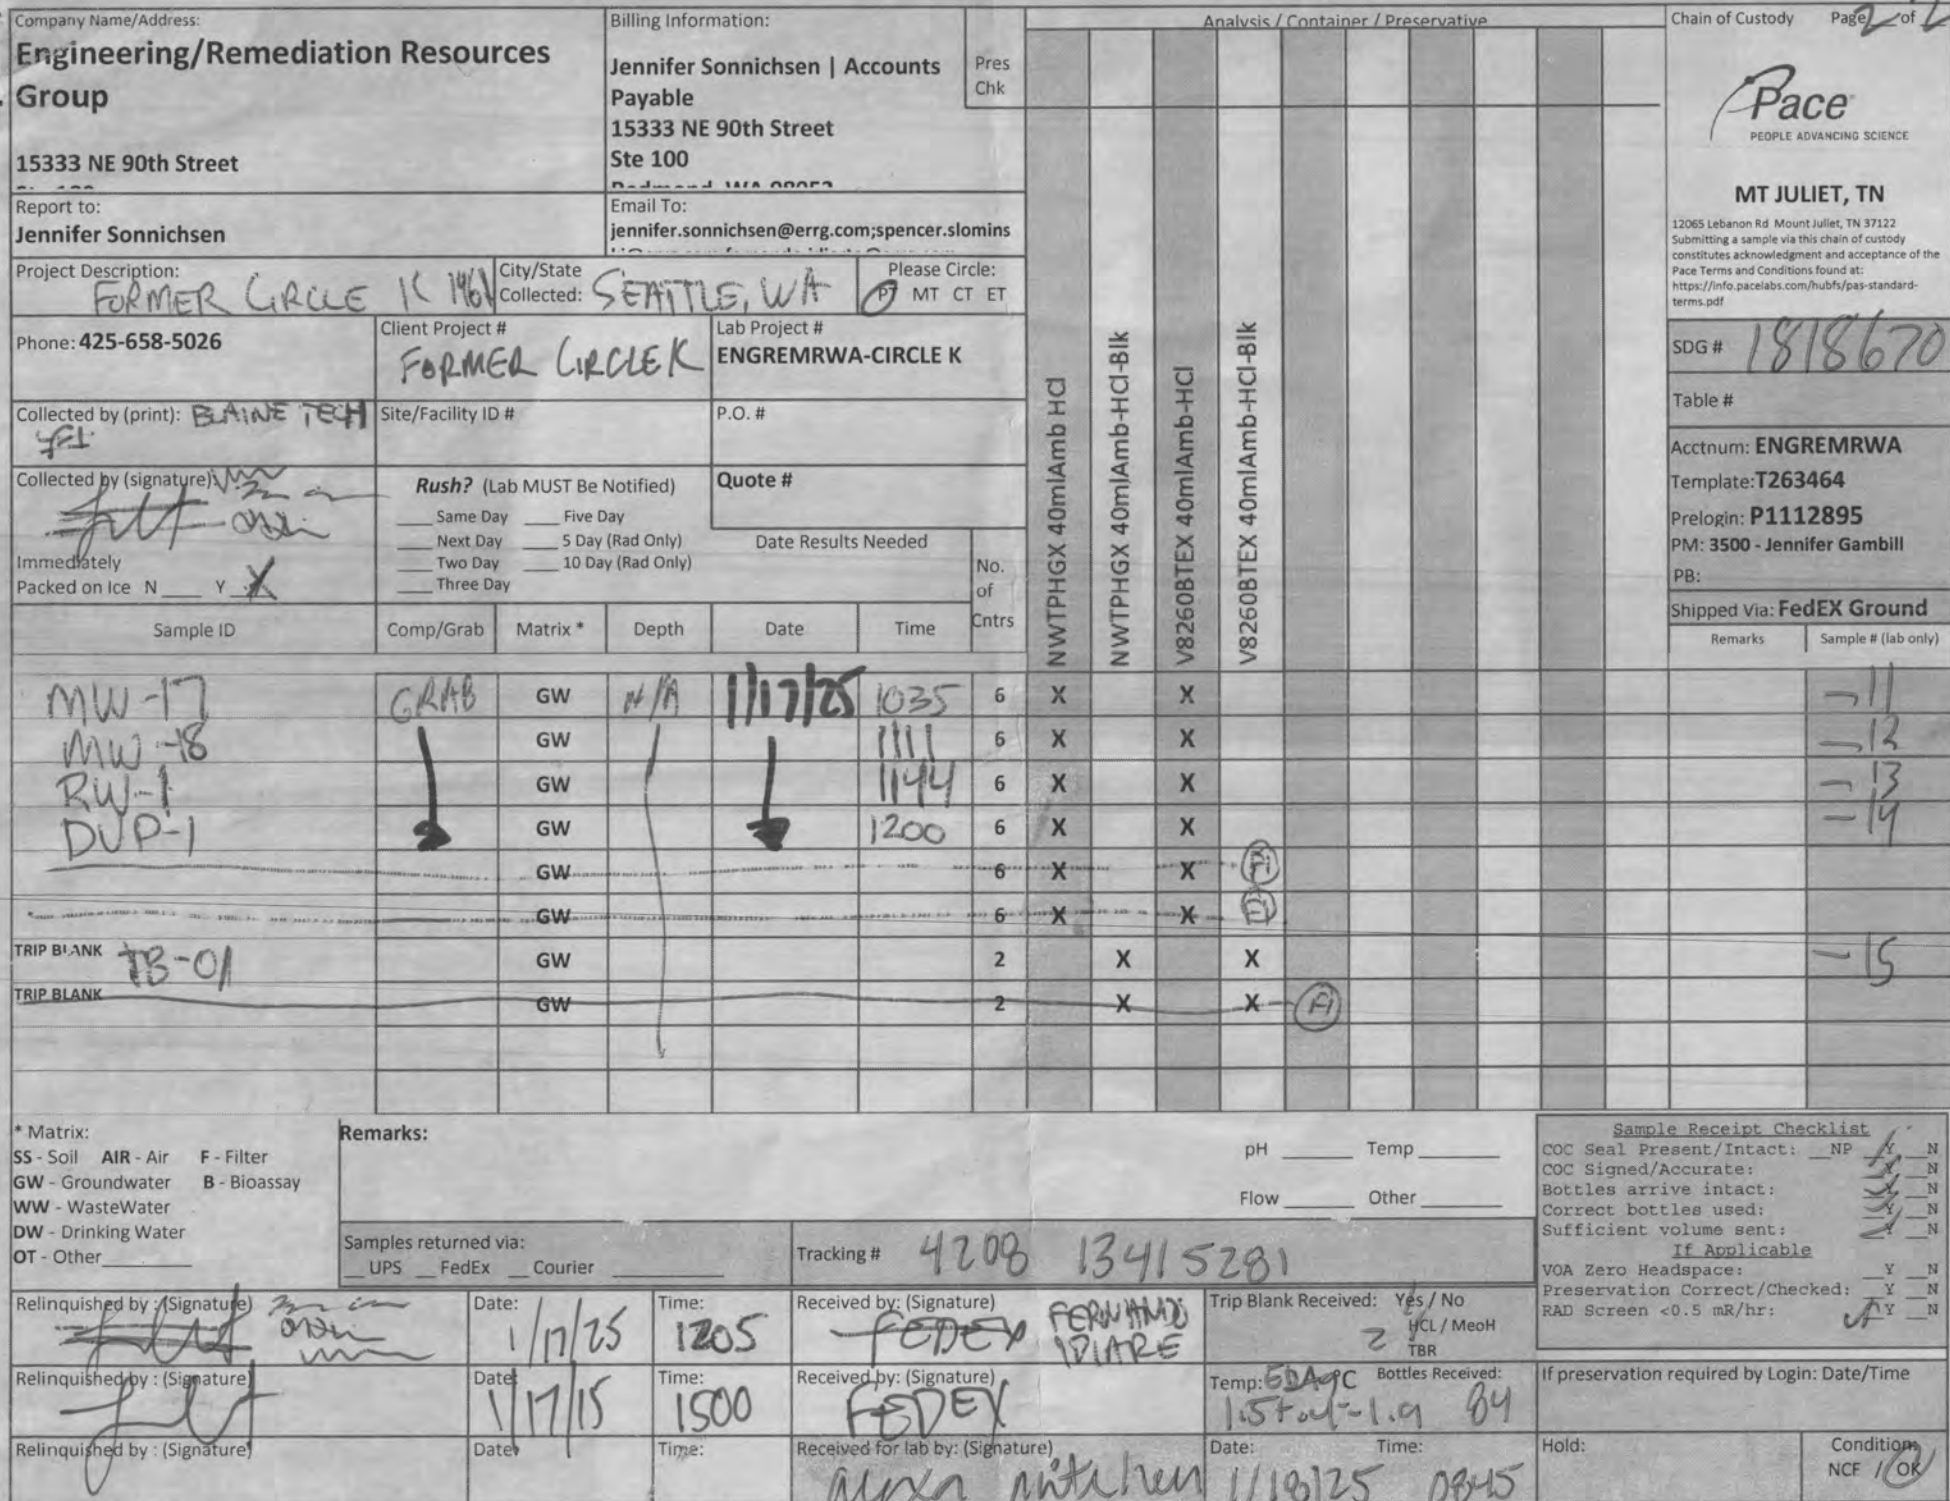 Company Name/Address:
Engineering/Remediation Resources
Group
15333 NE 90th Street
Billing Information:
Jennifer Sonnichsen | Accounts
Payable
15333 NE 90th Street
Ste 100
Pres
Chk
Analysis / Container / Preservative
Chain of Custody Page 2 of 2
Pace
PEOPLE ADVANCING SCIENCE
MT JULIET, TN
12065 Lebanon Rd Mount Juliet, TN 37122
Submitting a sample via this chain of custody
constitutes acknowledgment and acceptance of the
Pace Terms and Conditions found at:
https://info.pacelabs.com/hubfs/pas-standard-
terms.pdf
Report to:
Jennifer Sonnichsen
Email To:
jennifer.sonnichsen@errg.com;spencer.slomins
Project Description:
FORMER CIRCLE K 1461
City/State
Collected: SEATTLE, WA
Please Circle:
PT MT CT ET
Phone: 425-658-5026
Client Project #
FORMER CIRCLE K
Lab Project #
ENGREMRWA-CIRCLE K
SDG # 1818670
Table #
Acctnum: ENGREMRWA
Template:T263464
Prelogin: P1112895
PM: 3500 - Jennifer Gambill
PB:
Shipped Via: FedEX Ground
Collected by (print): BLAINE TECH
Site/Facility ID #
P.O. #
Collected by (signature):
Rush? (Lab MUST Be Notified)
___ Same Day ___ Five Day
___ Next Day ___ 5 Day (Rad Only)
___ Two Day ___ 10 Day (Rad Only)
___ Three Day
Quote #
Date Results Needed
Immediately
Packed on Ice N ___ Y X
No.
of
Cntrs
NWTPHGX 40mlAmb HCl
NWTPHGX 40mlAmb-HCl-Blk
V8260BTEX 40mlAmb-HCl
V8260BTEX 40mlAmb-HCl-Blk
Sample ID Comp/Grab Matrix * Depth Date Time Remarks Sample # (lab only)
MW-17 GRAB GW N/A 1/17/25 1035 6 X X -11
MW-18 GW 1111 6 X X -12
RW-1 GW 1144 6 X X -13
DUP-1 GW 1200 6 X X -14
GW 6 X X FI
GW 6 X X FI
TRIP BLANK TB-01 GW 2 X X -15
TRIP BLANK GW 2 X X FI
* Matrix:
SS - Soil AIR - Air F - Filter
GW - Groundwater B - Bioassay
WW - WasteWater
DW - Drinking Water
OT - Other
Remarks:
pH ___ Temp ___
Flow ___ Other ___
Samples returned via:
__ UPS __ FedEx __ Courier
Tracking # 4208 1341 5281
Sample Receipt Checklist
COC Seal Present/Intact: __NP __Y __N
COC Signed/Accurate: __Y __N
Bottles arrive intact: __Y __N
Correct bottles used: __Y __N
Sufficient volume sent: __Y __N
If Applicable
VOA Zero Headspace: __Y __N
Preservation Correct/Checked: __Y __N
RAD Screen <0.5 mR/hr: __Y __N
Relinquished by : (Signature)
Date: 1/17/25
Time: 1205
Received by: (Signature)
FEDEX FERNANDO IDIARE
Trip Blank Received: Yes / No
2 HCL / MeoH
TBR
Relinquished by : (Signature)
Date: 1/17/15
Time: 1500
Received by: (Signature)
FEDEX
Temp: °C Bottles Received:
84
If preservation required by Login: Date/Time
Relinquished by : (Signature)
Date:
Time:
Received for lab by: (Signature)
Date: 1/18/25
Time: 0845
Hold:
Condition:
NCF / OK